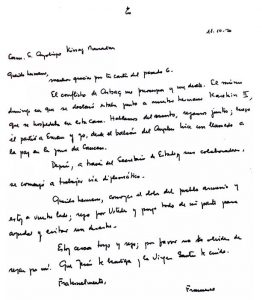 11.10.20
Querido hermano,
muchas gracias por tu carta del pasado 6.
El conflicto de Artsaj me preocupa y me duele. El mismo
domingo en que se declaró estaba junto a nuestro hermano Karekin II,
que se hospedaba en esta Casa. Hablamos del asunto, rezamos juntos; luego
él partió a Erevan y yo, desde el balcón del Angelus hice un llamado a
la paz en la zona del Cáucaso.
Después, a través del Secretario de Estado y sus colaboradores,
se comenzó a trabajar vía diplomática.
Querido hermano, conozco el dolor del pueblo armenio y
estoy a vuestro lado; rezo por Ustedes y pongo todo de mi parte para
ayudar y evitar un
Estoy cerca tuyo y rezo; por favor no te olvides de
rezar por mí. Que Jesús te bendiga y la Virgen Santa te cuide.
Fraternalmente,
Francisco